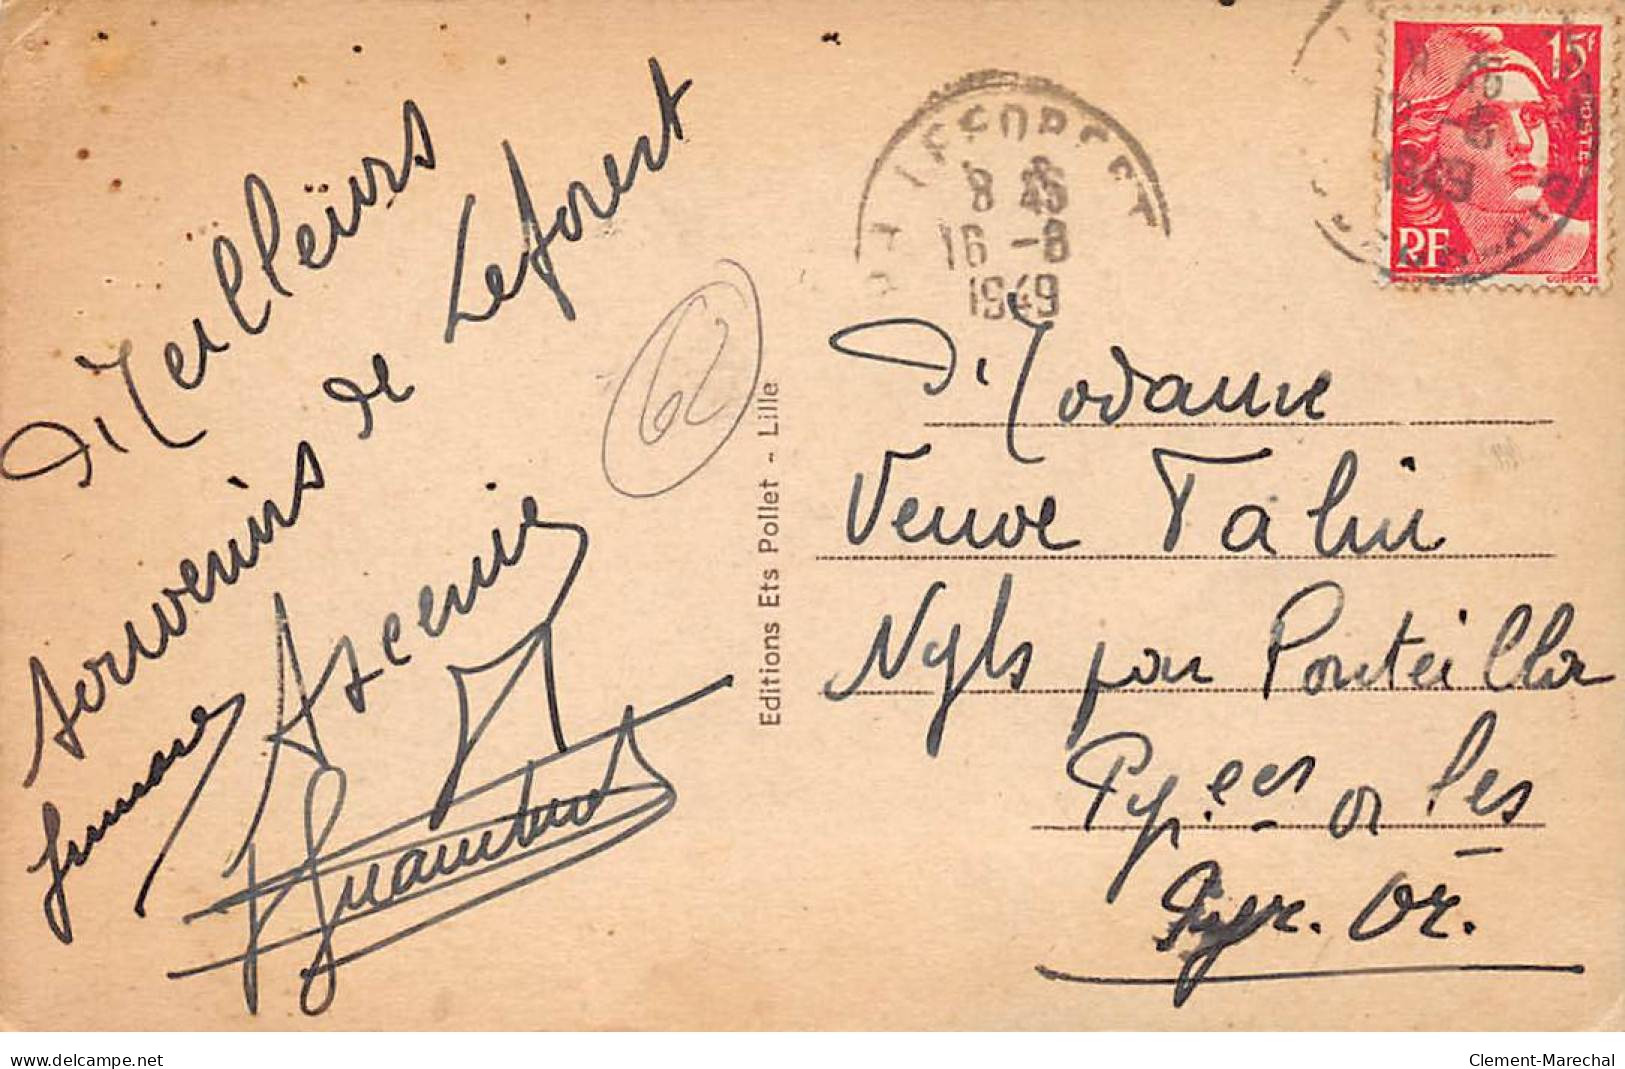 Meilleurs
souvenirs de Leforest
Madame
Veuve Talin
Nyls par Ponteilla
Pyr.ees or les
Pyr. Or.
Editions Ets Pollet - Lille
62
LIFFORCET
8 45
16 -8
1949
15F
POSTES
RF
1949
www.delcampe.net
Clement-Marechal